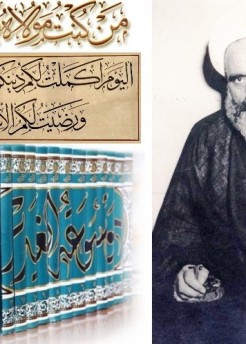 من كنت مولاه
اليوم اكملت لكم دينكم
ورضيت لكم الا
موسوعة الغدير